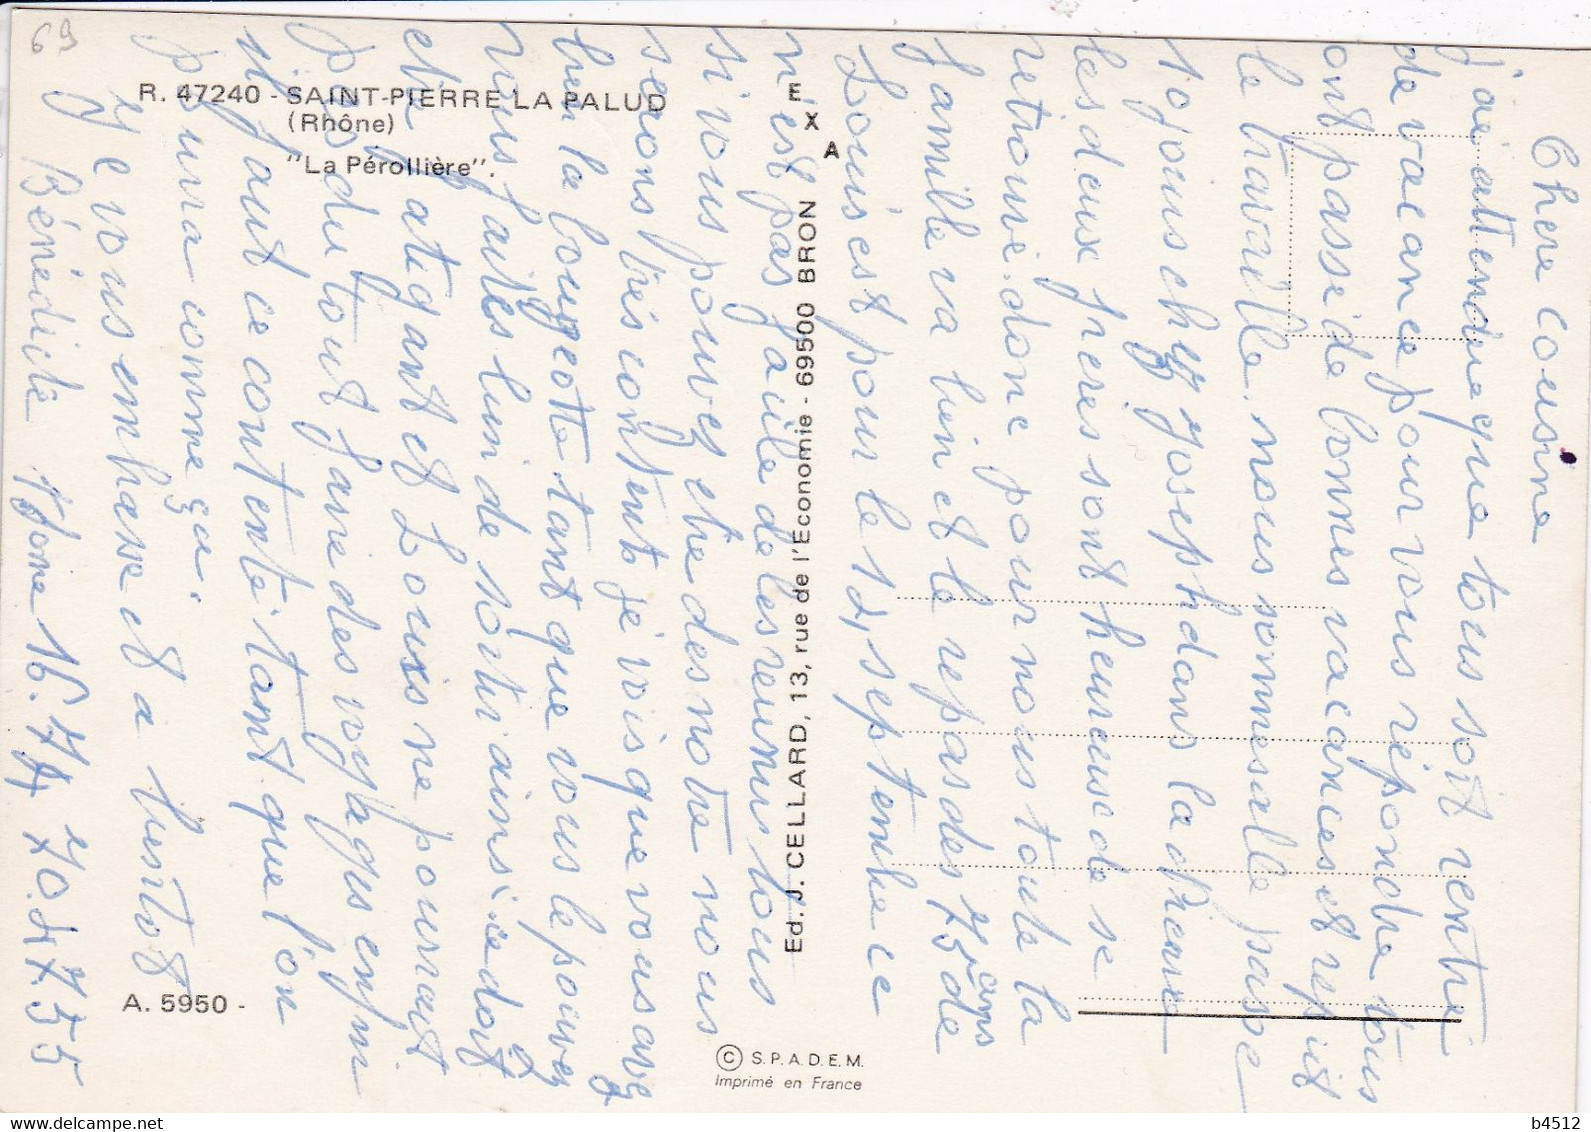 69
R. 47240 - SAINT-PIERRE LA PALUD
(Rhône)
"La Pérollière".
E
X
A
Ed. J. CELLARD, 13, rue de l'Économie - 69500 BRON
A. 5950 -
© S.P.A.D.E.M.
Imprimé en France
Chere cousine
j'ai attendue que tous soit rentré
de vacance pour vous répondre tous
ont passé de bonnes vacances et repit
le travaille. nous sommes allé passe
10 jours chez joseph dans la drome
les deux freres sont heureuse de se
retrouvé. donc pour nous toute la
famille va bien et le repas des 75 ans de
Louis est pour le 12, septembre ce
n'est pas facile de les reunir tous
si vous pouvez etre des notre nous
seront très content je vois que vous avez
bien la bougeotte tant que vous le pouvez
vous faites bien de sortir ainsi ce doit
etre fatigant et Louis ne pourrait
pas du tout faire des voyages enfin
il faut ce contenté tant que l'on
pourra comme ça.
Je vous embrasse et a bientot
Bénédicte 16.74 70.47.55
b4512